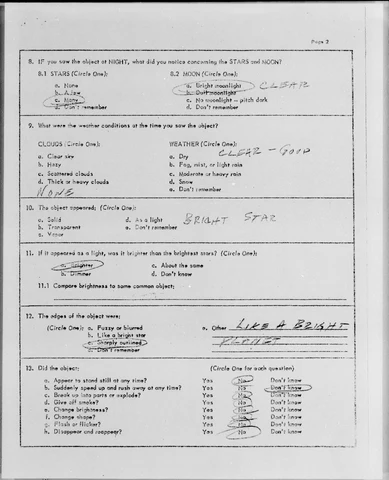 Page 2
8. IF you saw the object at NIGHT, what did you notice concerning the STARS and MOON?
8.1 STARS (Circle One): 8.2 MOON (Circle One):
a. None a. Bright moonlight CLEAR
b. A few b. Dull moonlight
c. Many c. No moonlight – pitch dark
d. Don't remember d. Don't remember
9. What were the weather conditions at the time you saw the object?
CLOUDS (Circle One): WEATHER (Circle One): CLEAR - GOOD
a. Clear sky a. Dry
b. Hazy b. Fog, mist, or light rain
c. Scattered clouds c. Moderate or heavy rain
d. Thick or heavy clouds d. Snow
NONE e. Don't remember
10. The object appeared: (Circle One):
a. Solid d. As a light BRIGHT STAR
b. Transparent e. Don't remember
c. Vapor
11. If it appeared as a light, was it brighter than the brightest stars? (Circle One):
a. Brighter c. About the same
b. Dimmer d. Don't know
11.1 Compare brightness to some common object:
12. The edges of the object were:
(Circle One): a. Fuzzy or blurred e. Other LIKE A BRIGHT
b. Like a bright star PLANET
c. Sharply outlined
d. Don't remember
13. Did the object: (Circle One for each question)
a. Appear to stand still at any time? Yes No Don't know
b. Suddenly speed up and rush away at any time? Yes No Don't know
c. Break up into parts or explode? Yes No Don't know
d. Give off smoke? Yes No Don't know
e. Change brightness? Yes No Don't know
f. Change shape? Yes No Don't know
g. Flash or flicker? Yes No Don't know
h. Disappear and reappear? Yes No Don't know